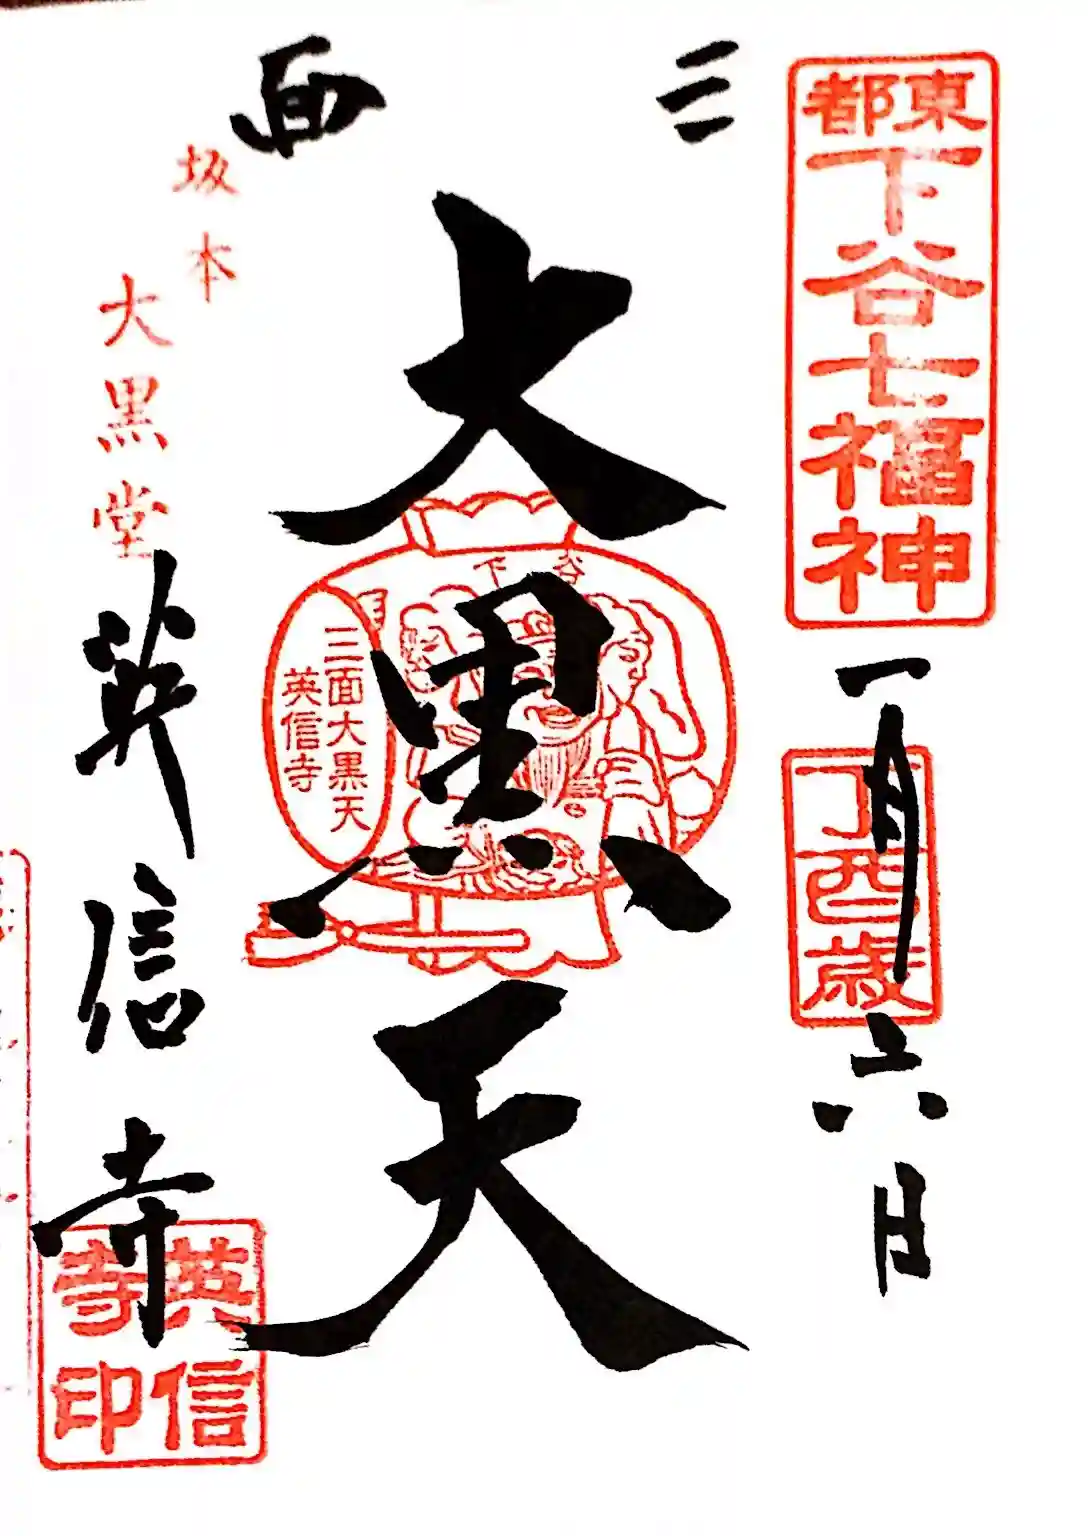 東都
下谷七福神
一月六日
丁酉歳
三面
大黒天
下谷
三面大黒天
英信寺
坂本
大黒堂
英信寺
英信寺印